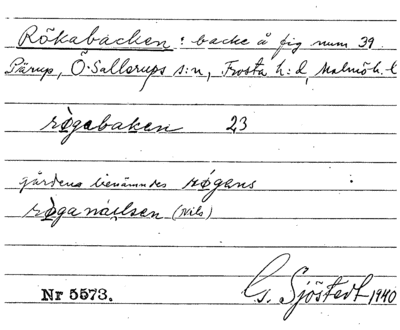 Rökabacken : backe å fig num 39
Pärup, Ö. Sallerups s:n, Frosta h:d, Malmöh. l
røgabaken 23
gårdens benämndes røgans
røga naılsen (Nils)
Nr 5573. G. Sjöstedt 1940